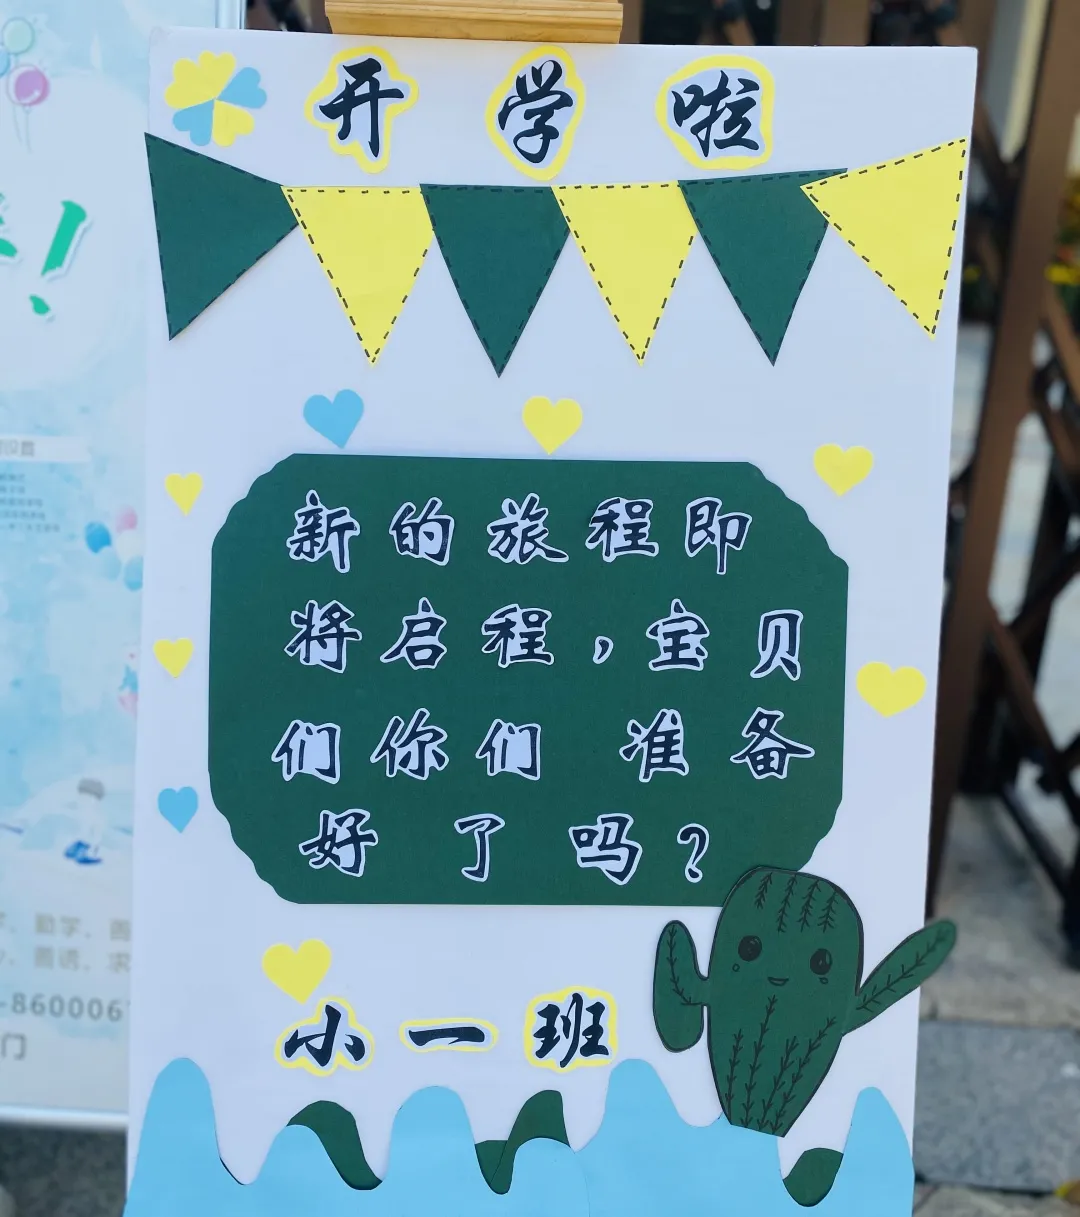 开学啦
新的旅程即
将启程，宝贝
们你们准备
好了吗？
小一班
-860006
门